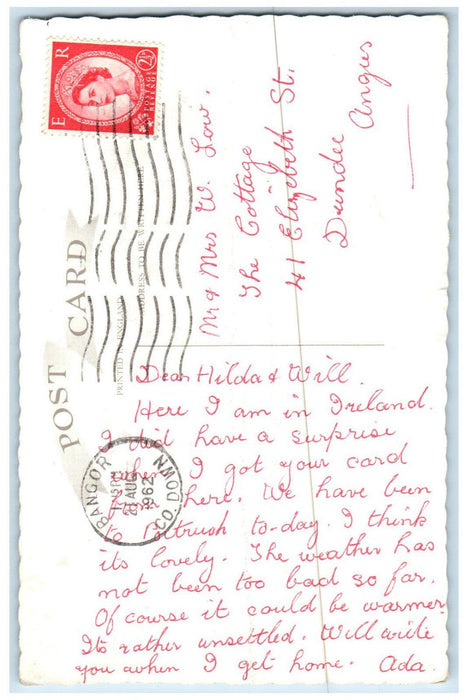 E R
2½D
POSTAGE
REVENUE
Mr & Mrs W. Low.
The Cottage
41 Elizabeth St.
Dundee
Angus
POST CARD
PRINTED IN ENGLAND
ADDRESS TO BE WRITTEN HERE
BANGOR
AUG
1962
CO. DOWN
Dear Hilda & Will.
Here I am in Ireland.
I did have a surprise
when I got your card
from here. We have been
to Ptrush to-day. I think
its lovely. The weather has
not been too bad so far.
Of course it could be warmer
Its rather unsettled. Will write
you when I get home. Ada.